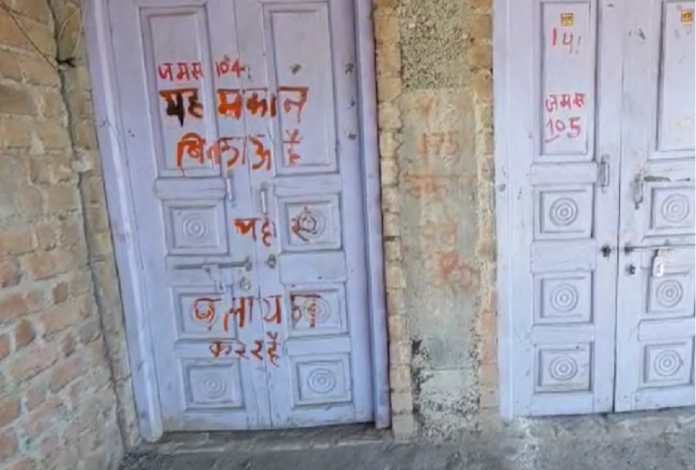 जमस 104!
यह मकान
बिकाऊ है
यहा से
पलायन
कर रहे है
175
14!
जमस
105